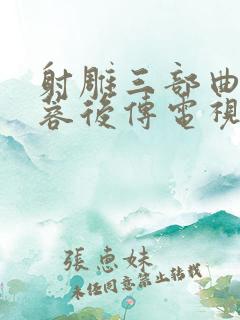 射雕三部曲
容後傳電視
張惠妹
未經同意禁止轉載